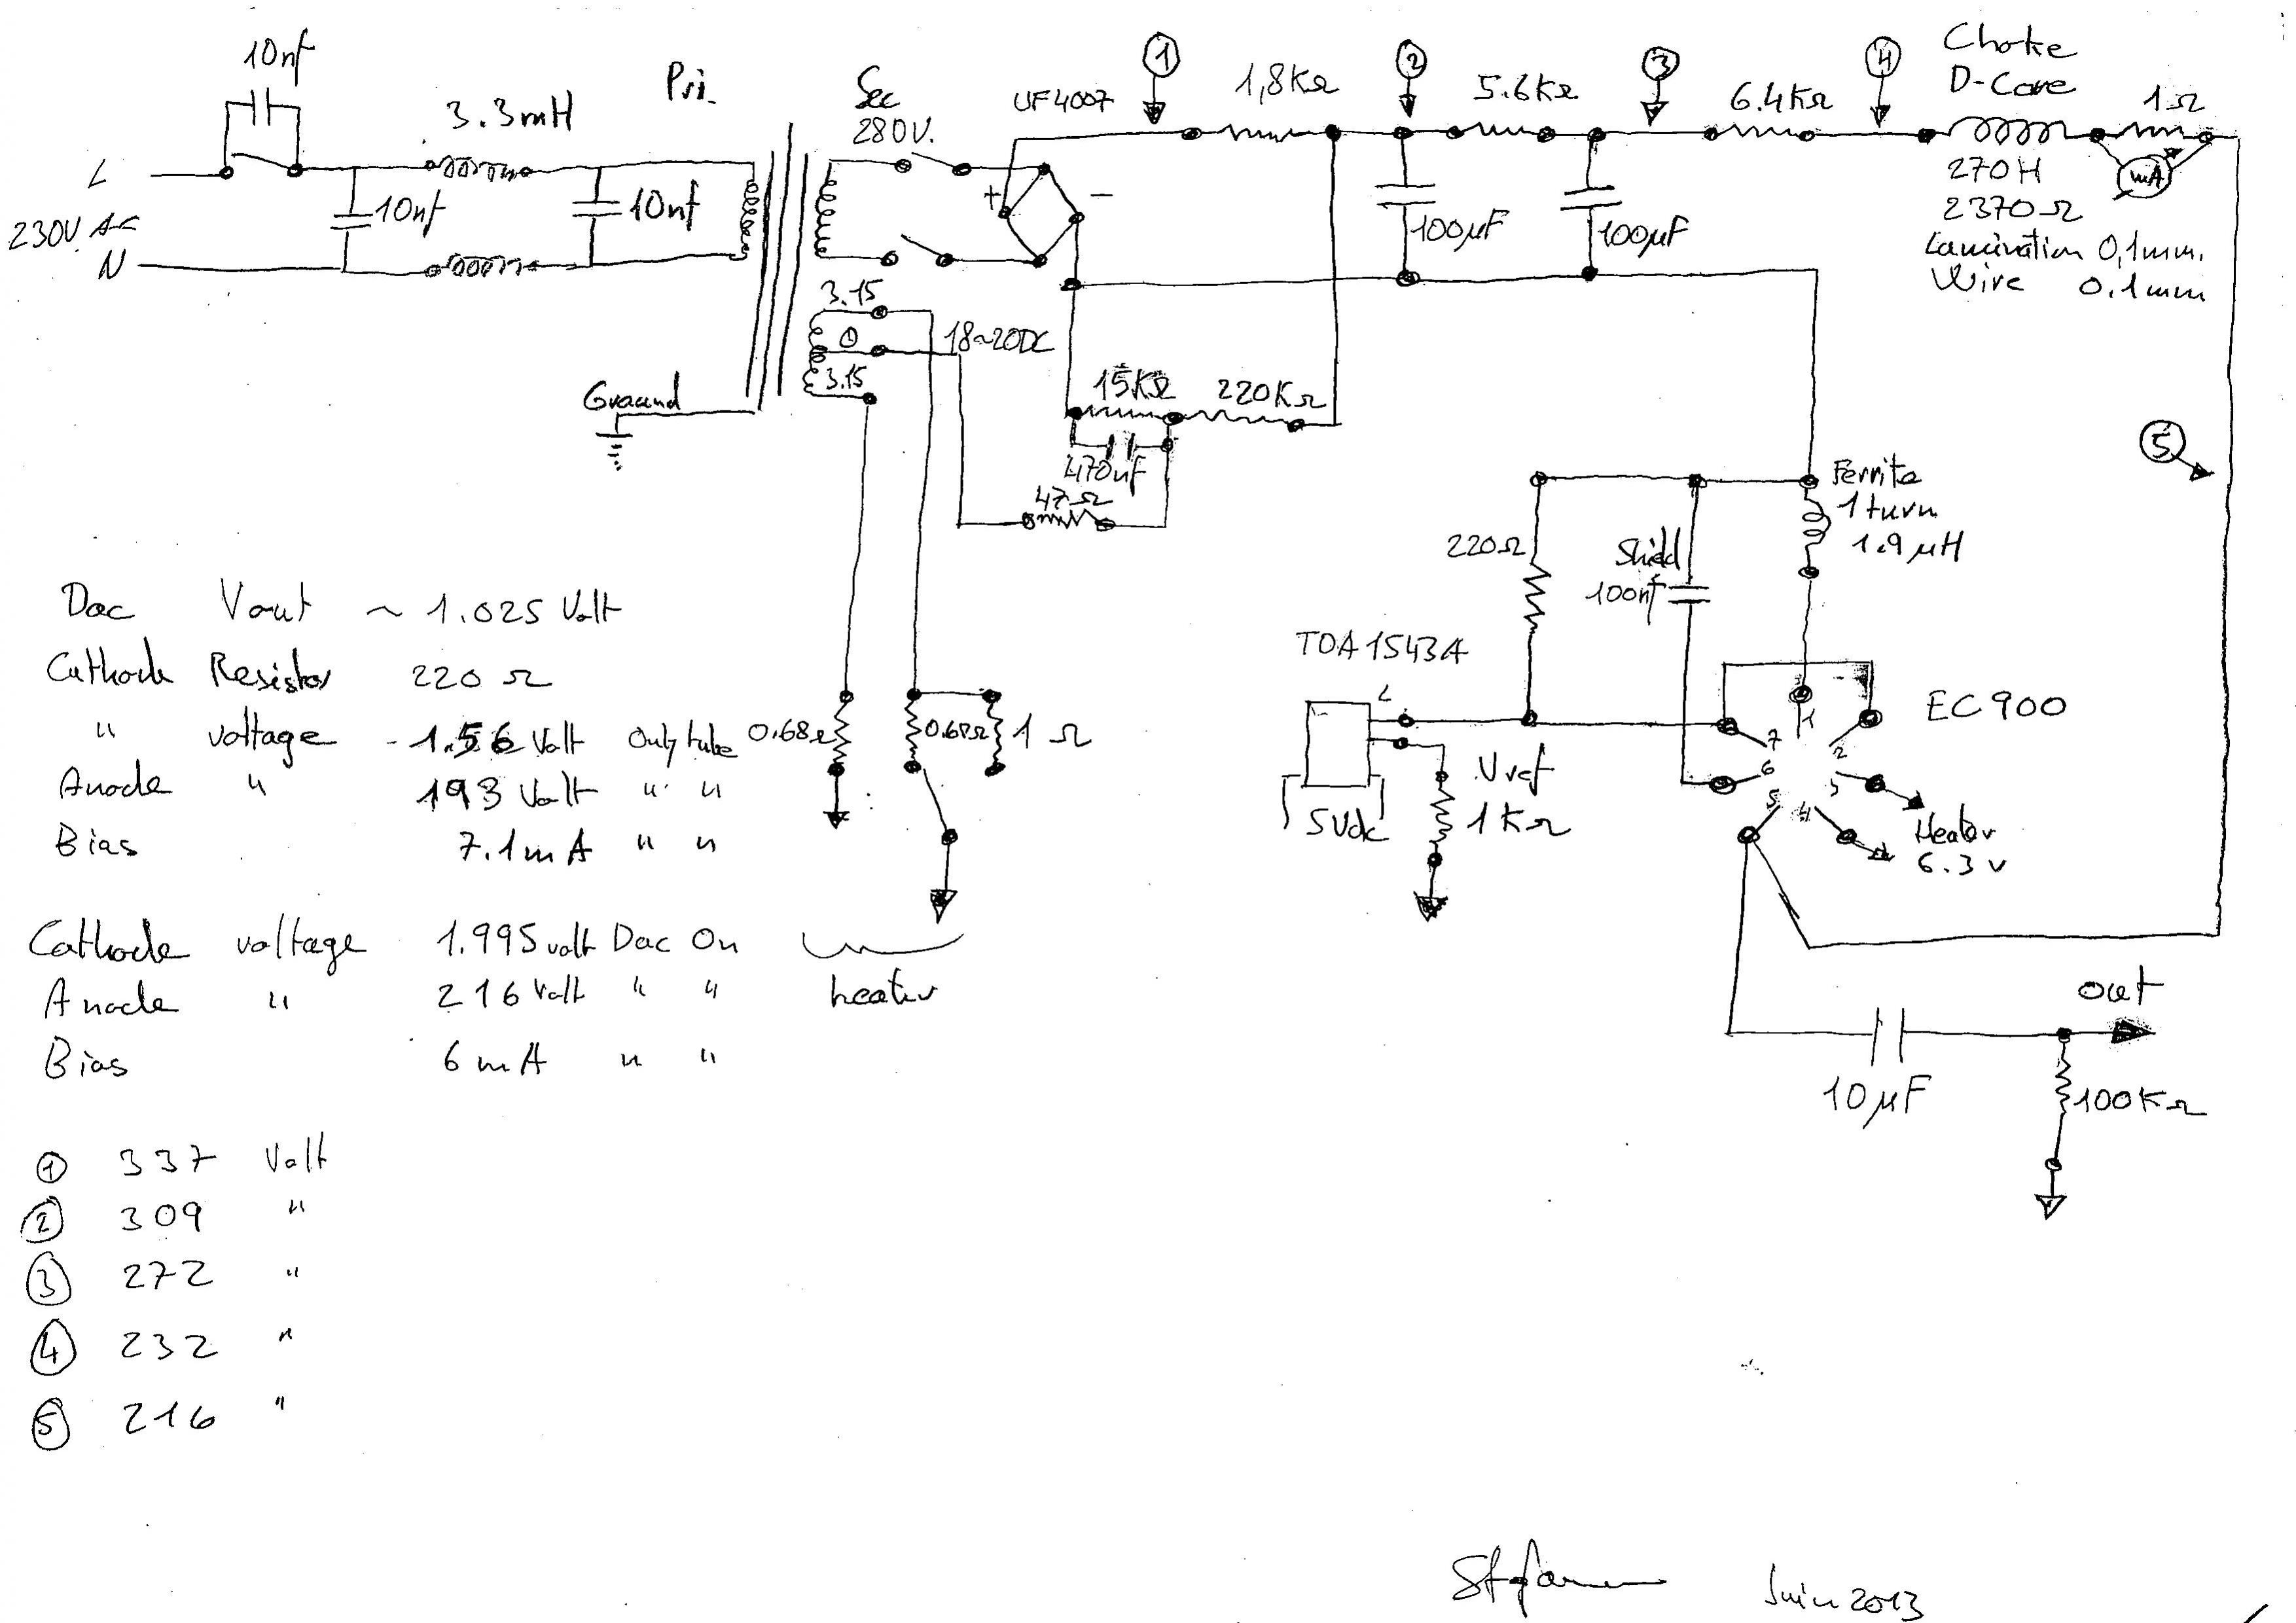 10nf
3.3mH
Pri.
Sec
280V.
UF4007
1
1,8KΩ
2
5.6KΩ
3
6.4KΩ
4
Choke
D-Core
1Ω
L
230V AC
N
10nf
10nf
+
-
100µF
100µF
270H
2370Ω
mA
Lamination 0,1mm.
Wire 0.1mm
3.15
0
3.15
18~20DC
Ground
15KΩ
220KΩ
470nf
47Ω
5
Ferrite
1 turn
1.9µH
220Ω
Shield
100nf
Dac Vout ~ 1.025 Volt
Cathode Resistor 220Ω
" voltage - 1.56 Volt Only tube
Anode " 193 Volt " "
Bias 7.1mA " "
0.68Ω
0.68Ω
1Ω
TDA1543A
L
Vref
5Vdc
1KΩ
EC900
1
2
3
4
5
6
7
Heater
6.3v
Cathode voltage 1.995 volt Dac On
Anode " 216 Volt " "
Bias 6mA " "
heater
out
10µF
100KΩ
1 337 Volt
2 309 "
3 272 "
4 232 "
5 216 "
Juin 2013